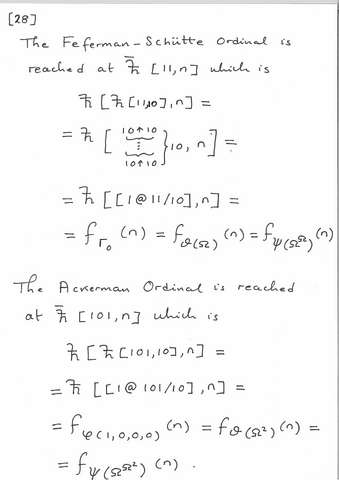 [28]
The Feferman-Schütte Ordinal is
reached at ħ̄ [11,n] which is
ħ [ħ[11,10],n] =
= ħ [ 10↑10 ⋮ 10↑10 } 10, n ] =
= ħ [[1@11/10],n] =
= f_Γ₀ (n) = f_ϑ(Ω) (n) = f_ψ(Ω^Ω) (n)
The Ackerman Ordinal is reached
at ħ̄ [101,n] which is
ħ [ħ[101,10],n] =
= ħ [[1@101/10],n] =
= f_φ(1,0,0,0) (n) = f_ϑ(Ω²) (n) =
= f_ψ(Ω^Ω²) (n) .